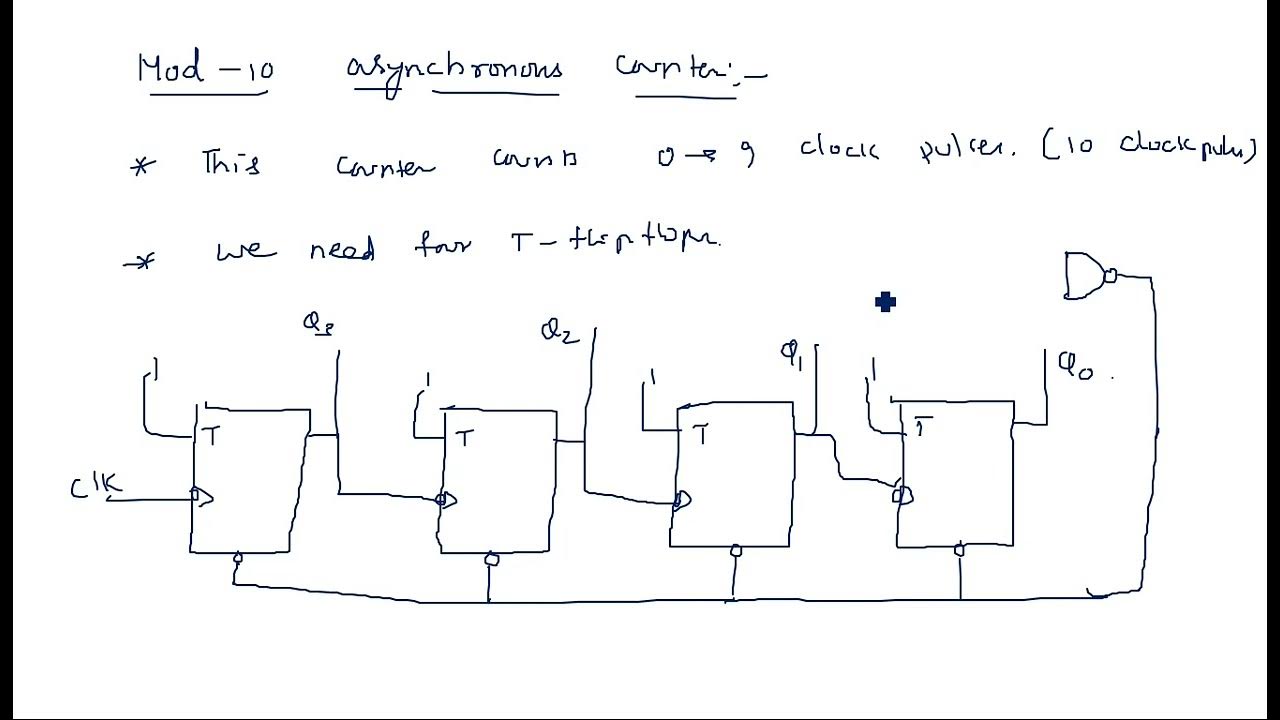 Mod - 10 asynchronous counter:-
* This counter counts 0 → 9 clock pulses. (10 clock pulses)
* we need four T - flip flops.
Q3 Q2 Q1 Q0
1 1 1 1
T T T T
Clk